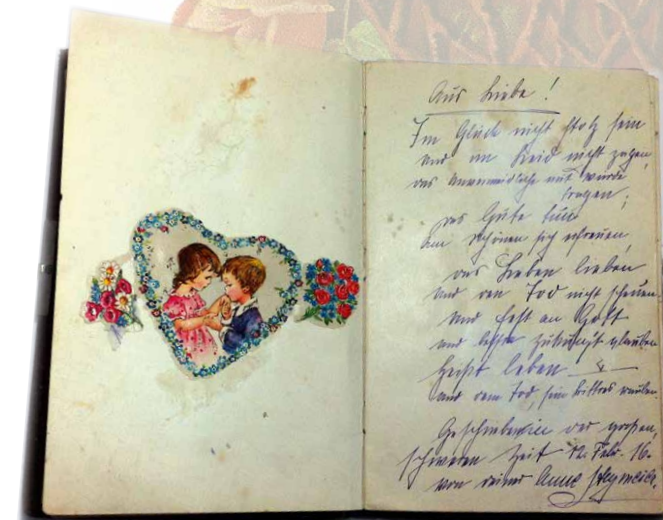 Aus Liebe!
Im Glück nicht stolz sein
und im Leid nicht zagen,
das Unvermeidliche mit würde
tragen;
das Gute tun
am Schönen sich erfreuen,
das Leben lieben
und den Tod nicht scheuen
und fest an Gott
und bessre Zukunft glauben
heißt leben
und dem Tod sein bittres rauben.
Geschrieben in der großen,
schweren Zeit 12. Febr. 16.
von deiner Anna